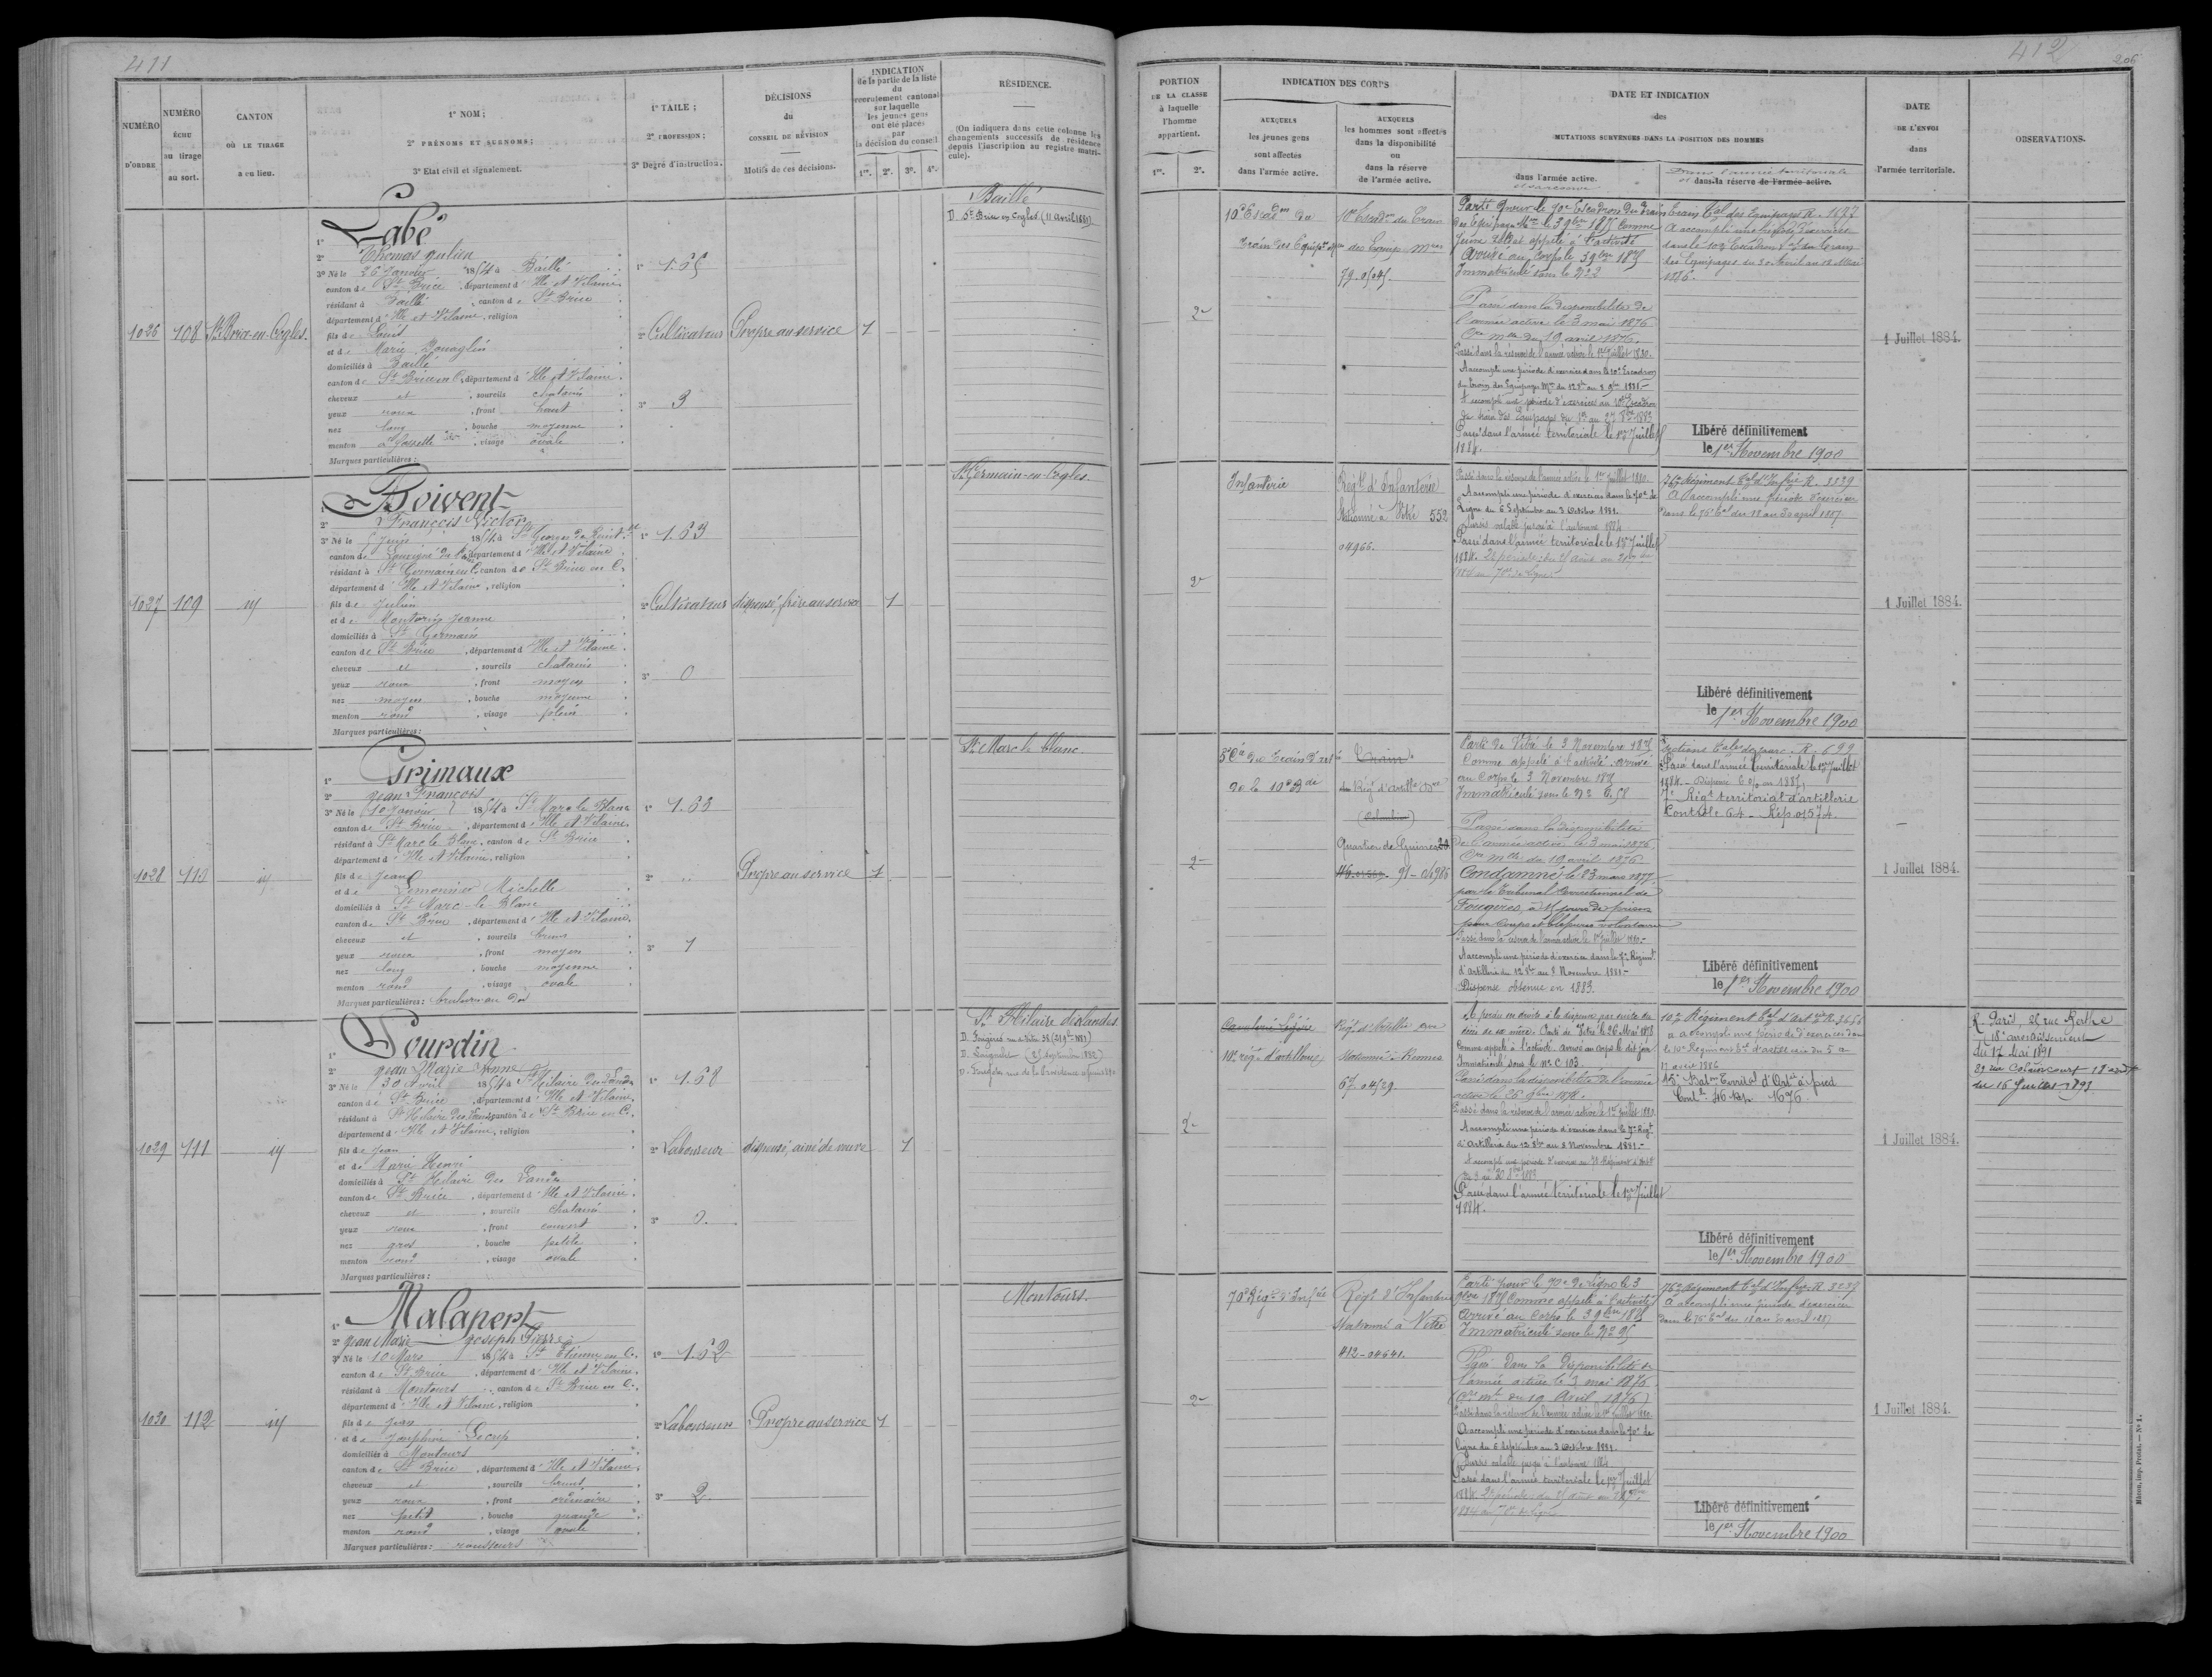 411
NUMÉRO
D'ORDRE
NUMÉRO
ÉCHU
au tirage
au sort.
CANTON
OÙ LE TIRAGE
a eu lieu.
1° NOM ;
2° PRÉNOMS ET SURNOMS ;
3° Etat civil et signalement.
1° TAILE ;
2° PROFESSION ;
3° Degré d'instruction.
DÉCISIONS
du
CONSEIL DE RÉVISION
Motifs de ces décisions.
INDICATION
de la partie de la liste
du
recrutement cantonal
sur laquelle
les jeunes gens
ont été placés
par
la décision du conseil
1re. 2e. 3e. 4e.
RÉSIDENCE.
(On indiquera dans cette colonne les
changements successifs de résidence
depuis l'inscription au registre matri-
cule).
1026
108
St Brice-en-Cogles.
1° Labé
2° Thomas Julien
3° Né le 26 Janvier 1854 à Baillé
canton de St Brice, département d' Ille et Vilaine
résidant à Baillé, canton de St Brice
département d' Ille et Vilaine, religion
fils de Louis
et de Marie
domiciliés à Baillé
canton de St Brice en C, département d' Ille et Vilaine.
cheveux et, sourcils chatains
yeux roux, front haut
nez long, bouche moyenne
menton à fossette, visage ovale
Marques particulières :
1° 1.65
2° Cultivateur
3° 3
Propre au service
1
Baillé
D. St Brice en Cogles (11 avril 1880)
1027
109
id
1° Boivent
2° François Victor
3° Né le 5 Juin 1854 à St Georges de Reint.
canton de Louvigné du, département d' Ille et Vilaine
résidant à St Germain en C, canton de St Brice en C.
département d' Ille et Vilaine, religion
fils de Julien
et de Jeanne
domiciliés à St Germain
canton de St Brice, département d' Ille et Vilaine
cheveux et, sourcils chatains
yeux roux, front moyen
nez moyen, bouche moyenne
menton rond, visage plein
Marques particulières :
1° 1.63
2° Cultivateur
3° 0
dispensé, frère au service
1
St Germain-en-Cogles.
1028
110
id
1° Grimaux
2° Jean François
3° Né le 10 Janvier 1854 à St Marc le Blanc
canton de St Brice, département d' Ille et Vilaine.
résidant à St Marc le Blanc, canton de St Brice
département d' Ille et Vilaine, religion
fils de Jean
et de Lemonnier Michelle
domiciliés à St Marc-le-Blanc
canton de St Brice, département d' Ille et Vilaine.
cheveux et, sourcils bruns
yeux roux, front moyen
nez long, bouche moyenne
menton rond, visage ovale
Marques particulières : brulure au
1° 1.63
2°
3° 1
Propre au service
1
St Marc le blanc.
1029
111
id
1° Lourdin
2° Jean Marie
3° Né le 30 Avril 1854 à St Hilaire des Landes
canton de St Brice, département d' Ille et Vilaine.
résidant à St Hilaire des Landes, canton de St Brice en C.
département d' Ille et Vilaine, religion
fils de Jean
et de Marie Henri
domiciliés à St Hilaire des Landes
canton de St Brice, département d' Ille et Vilaine.
cheveux et, sourcils chatains
yeux roux, front couvert
nez gros, bouche petite
menton rond, visage ovale
Marques particulières :
1° 1.68
2° Laboureur
3° 0.
dispensé, ainé de veuve
1
St Hilaire des Landes
D. Fougères
D. (25 septembre 1882)
D. Fougères rue de la Providence
1030
112
id
1° Malapert
2° Jean Marie Joseph Pierre
3° Né le 10 Mars 1854 à St Etienne en C.
canton de St Brice, département d' Ille et Vilaine.
résidant à Montours, canton de St Brice en C.
département d' Ille et Vilaine, religion
fils de Jean
et de Joséphine
domiciliés à Montours
canton de St Brice, département d' Ille et Vilaine.
cheveux et, sourcils bruns
yeux roux, front ordinaire
nez petit, bouche grande
menton rond, visage ovale
Marques particulières : rousseurs
1° 1.62
2° Laboureur
3° 2
Propre au service
1
Montours.
412
206
PORTION
DE LA CLASSE
à laquelle
l'homme
appartient.
1re. 2e.
INDICATION DES CORPS
AUXQUELS
les jeunes gens
sont affectés
dans l'armée active.
AUXQUELS
les hommes sont affectés
dans la disponibilité
ou
dans la réserve
de l'armée active.
DATE ET INDICATION
des
MUTATIONS SURVENUES DANS LA POSITION DES HOMMES
dans l'armée active.
et sa réserve
Dans l'armée territoriale
et dans la réserve de l'armée active.
DATE
DE L'ENVOI
dans
l'armée territoriale.
OBSERVATIONS.
2e
10e Escadron du
train des Equip.
10e Escadron du Train
des Equip. Mres
Parti pour le 10e Escadron du train
des Equipages Mres le 3 9bre 1875 comme
jeune soldat appelé à l'activité
Arrivé au corps le 3 9bre 1875
Immatriculé sous le N°
Passé dans la disponibilité de
l'armée active le 3 mai 1876
Cre mlle du 19 avril 1876.
Passé dans la réserve de l'armée active le 1er juillet 1880.
A accompli une période d'exercices dans le 10e Escadron
du train des Equipages Mres du 12 8bre au 8 9bre 1881.
A accompli une période d'exercice au 10e Escadron
du train des Equipages du 1er au 27 8bre 1883
Passé dans l'armée territoriale le 1er Juillet
1884.
Train tal des Equipages R. 1677
A accompli une période d'exercices
dans le 10e Escadron tal du Train
des Equipages du 30 Avril au 12 Mai
1886.
Libéré définitivement
le 1er Novembre 1900
1 Juillet 1884.
2e
Infanterie
Régt d'Infanterie
stationné à Vitré 552
04966.
Passé dans la réserve de l'armée active le 1er juillet 1880.
A accompli une période d'exercices dans le 70e de
Ligne du 6 Septembre au 3 Octobre 1881.
Sursis valable jusqu'à l'automne 1884
Passé dans l'armée territoriale le 1er Juillet
1884.
76e Régiment tal d'Infrie R. 3239
A accompli une période d'exercices
dans le 76e tal du 18 au 30 april 1887
Libéré définitivement
le 1er Novembre 1900
1 Juillet 1884.
2e
de la 10e Bde
Train
du Régt d'artillie
Quartier de Guines
91-04986
Parti de Vitré le 3 Novembre 1875
Comme appelé à l'activité. arrivé
au Corps le 3 Novembre 1875
Immatriculé sous le N°
Passé dans la disponibilité
de l'armée active le 3 mai 1876
Cre mlle du 19 avril 1876
Condamné le 23 mars 1877
par le Tribunal Correctionnel de
Fougères, à 15 jours de prison
pour coups et blessures volontaires
Passé dans la réserve de l'armée active le 1er juillet 1880.
A accompli une période d'exercices dans le 7e Régiment
d'Artillerie du 12 8bre au 8 Novembre 1881.
Dispense obtenue en 1883.
Sections tales de parc. R. 699
Passé dans l'armée territoriale le 1er Juillet
1884. - Dispensé
7e Régt territorial d'artillerie
Contrôle 64 - Rép 01574.
Libéré définitivement
le 1er Novembre 1900
1 Juillet 1884.
2e
Cavalerie légère
10e régt d'artillerie
Régt d'Artillie
stationné à Rennes
A perdu ses droits à la dispense par suite du
décès de sa mère. Parti de Vitré le 26 Mai 1878
comme appelé à l'activité. Arrivé au corps le dit jour
Immatriculé sous le N° C 103.
Passé dans la disponibilité de l'armée
active le 26
Passé dans la réserve de l'armée active le 1er juillet 1880.
A accompli une période d'exercices dans le 7e Régt
d'Artillerie du 12 8bre au 8 Novembre 1881.
Passé dans l'armée territoriale le 1er Juillet
1884.
10e Régiment tal d'Artie R. 3656
A accompli une période d'exercices dans
le 10e Régiment tal d'artillerie du 5 au
17 avril 1886
15e Baton Territal d'Artie à pied
Libéré définitivement
le 1er Novembre 1900
1 Juillet 1884.
R. Paris, rue Berthe
(18e arrondissement)
du 17 Mai 1891
29 rue Colaincourt 18e
du 16 Juillet 1893
2e
70e Régt d'Infrie
Régt d'Infanterie
stationné à Vitré
412-04641.
Parti pour le 70e de Ligne le 3
9bre 1875 Comme appelé à l'activité
Arrivé au Corps le 3 9bre 1875
Immatriculé sous le N°
Passé dans la Disponibilité de
l'armée active le 3 mai 1876
(Cre mle du 19 Avril 1876)
Passé dans la réserve de l'armée active le 1er juillet 1880.
A accompli une période d'exercices dans le 70e de
ligne du 6 septembre au 3 Octobre 1881.
Sursis valable jusqu'à l'automne 1884
Passé dans l'armée territoriale le 1er Juillet
1884.
76e Régiment tal d'Infrie R. 3237
A accompli une période d'exercices
dans le 76e tal du 18 au 30 avril 1887
Libéré définitivement
le 1er Novembre 1900
1 Juillet 1884.
Mâcon, imp. Protat. — N° 1.